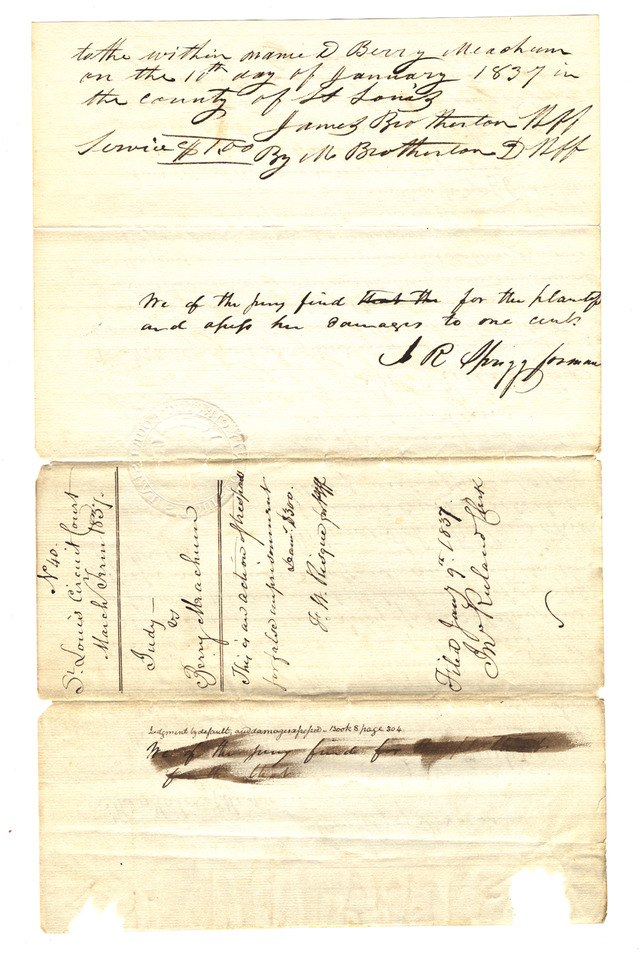 to the within name D Berry Meachum
on the 10th day of January 1837 in
the county of St Louis
James Brotherton Shff
Service $1.00 By M Brotherton D Shff
We of the jury find that the for the plantiff
and assess her damages to one cent.
J R Sprigg forman
No 40.
St Louis Circuit Court
March Term 1837.
Judy
vs
Berry Meachum
This is an action of trespass
for false imprisonment
Dam: $300.
F. W. Risque for Plff
Filed Jany 9th 1837
Jno Ruland Clerk
Judgment by default, and damages assessed - Book 8 page 304.
We of the jury find for
that